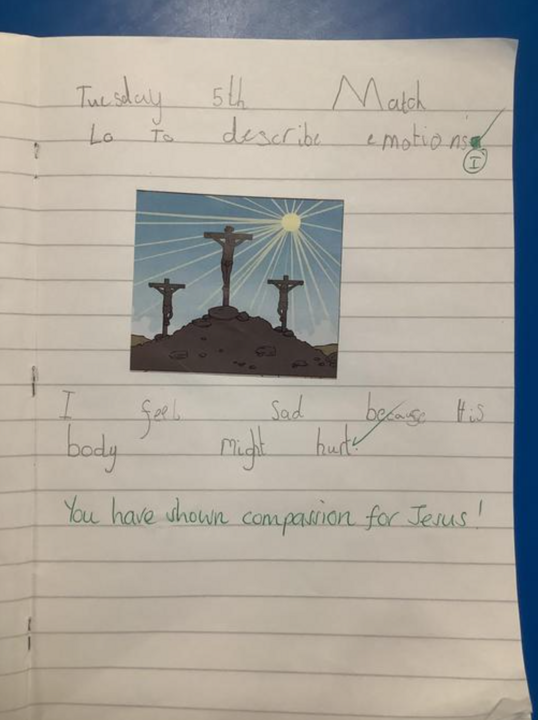 Tuesday 5th Match
Lo To describe emotions.
I
I feel sad because His
body might hurt.
You have shown compassion for Jesus!